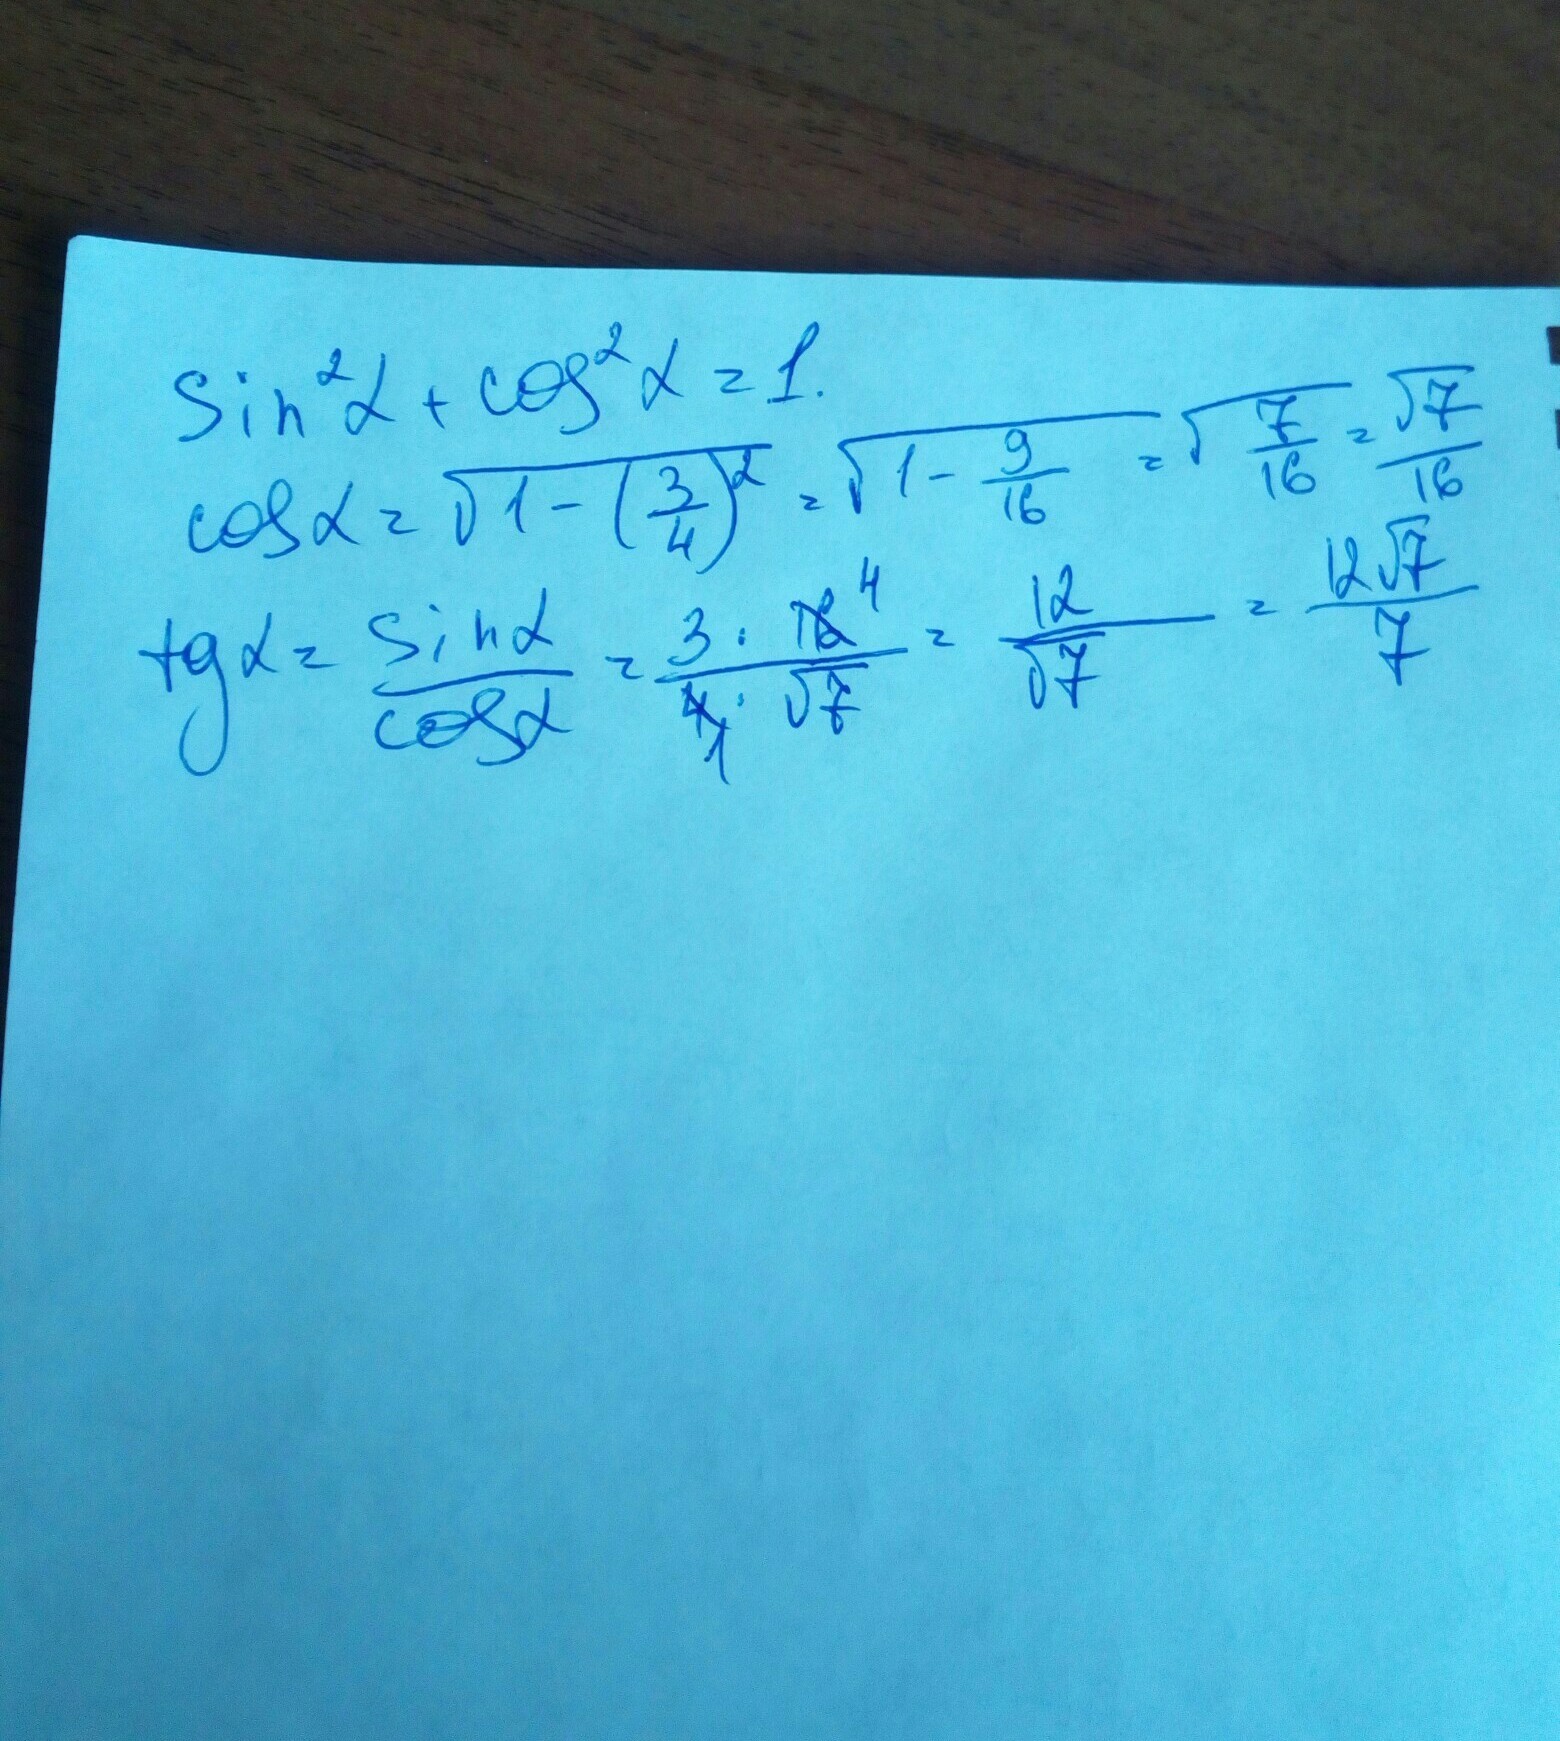 sin²α + cos²α = 1.
cosα = √(1 - (3/4)²) = √(1 - 9/16) = √(7/16) = √7/16
tgα = sinα/cosα = 3 · 16 4/4 1 · √7 = 12/√7 = 12√7/7